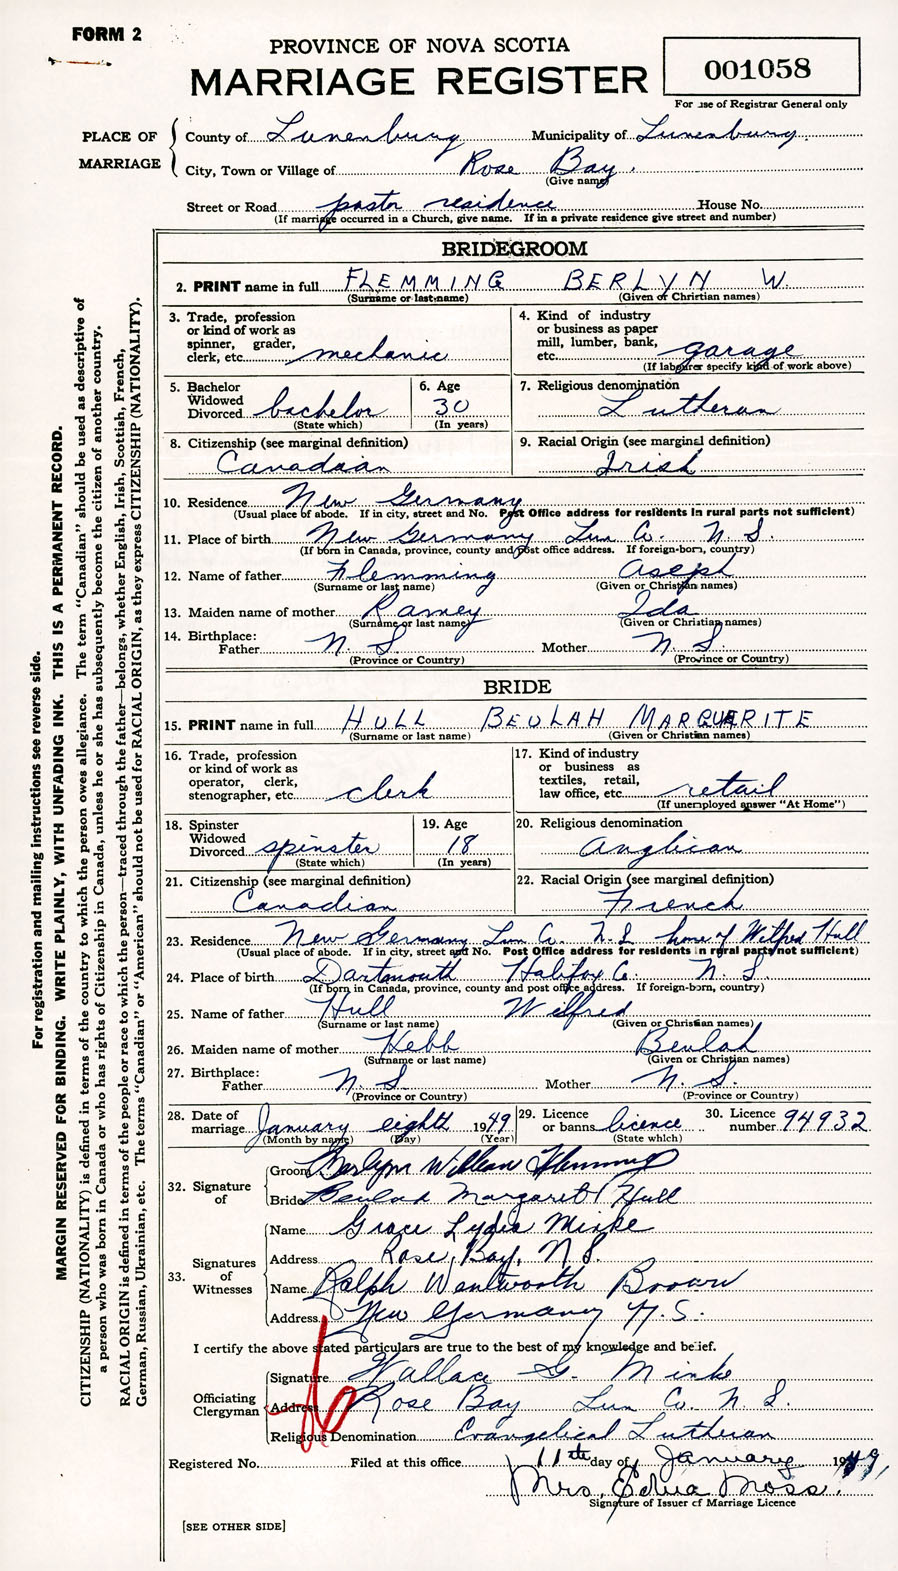 FORM 2
PROVINCE OF NOVA SCOTIA
MARRIAGE REGISTER
001058
For use of Registrar General only
PLACE OF MARRIAGE
County of Lunenburg Municipality of Lunenburg
City, Town or Village of Rose Bay.
(Give name)
Street or Road pastor residence House No.
(If marriage occurred in a Church, give name. If in a private residence give street and number)
BRIDEGROOM
2. PRINT name in full FLEMMING BERLYN W.
(Surname or last name) (Given or Christian names)
3. Trade, profession or kind of work as spinner, grader, clerk, etc. mechanic
4. Kind of industry or business as paper mill, lumber, bank, etc. garage
(If labourer specify kind of work above)
5. Bachelor Widowed Divorced bachelor
(State which)
6. Age 30
(In years)
7. Religious denomination
Lutheran
8. Citizenship (see marginal definition)
Canadaian
9. Racial Origin (see marginal definition)
Irish
10. Residence New Germany
(Usual place of abode. If in city, street and No. Post Office address for residents in rural parts not sufficient)
11. Place of birth New Germany Lun Co. N. S.
(If born in Canada, province, county and post office address. If foreign-born, country)
12. Name of father Flemming Aseph
(Surname or last name) (Given or Christian names)
13. Maiden name of mother Ramey Ida
(Surname or last name) (Given or Christian names)
14. Birthplace:
Father N. S. Mother N. S.
(Province or Country) (Province or Country)
BRIDE
15. PRINT name in full HULL BEULAH MARGUERITE
(Surname or last name) (Given or Christian names)
16. Trade, profession or kind of work as operator, clerk, stenographer, etc. clerk
17. Kind of industry or business as textiles, retail, law office, etc. retail
(If unemployed answer "At Home")
18. Spinster Widowed Divorced spinster
(State which)
19. Age 18
(In years)
20. Religious denomination
Anglican
21. Citizenship (see marginal definition)
Canadian
22. Racial Origin (see marginal definition)
French
23. Residence New Germany Lun Co. N. S. home of Wilfred Hull
(Usual place of abode. If in city, street and No. Post Office address for residents in rural parts not sufficient)
24. Place of birth Dartmouth Halifax Co. N. S
(If born in Canada, province, county and post office address. If foreign-born, country)
25. Name of father Hull Wilfred
(Surname or last name) (Given or Christian names)
26. Maiden name of mother Hebb Beulah
(Surname or last name) (Given or Christian names)
27. Birthplace:
Father N. S. Mother N. S.
(Province or Country) (Province or Country)
28. Date of marriage January eighth 1949
(Month by name) (Day) (Year)
29. Licence or banns licence
(State which)
30. Licence number 94932
32. Signature of
Groom Berlyn William Flemming
Bride Beulah Margaret Hull
33. Signatures of Witnesses
Name Grace Lydia Minke
Address Rose Bay, N. S.
Name Ralph Wentworth Brown
Address New Germany N. S.
I certify the above stated particulars are true to the best of my knowledge and belief.
Officiating Clergyman
Signature Wallace G. Minke
Address Rose Bay Lun Co. N. S.
Religious Denomination Evangelical Lutheran
Registered No. Filed at this office 11th day of January 1949,
Mrs. Edna Moss.
Signature of Issuer of Marriage Licence
[SEE OTHER SIDE]
For registration and mailing instructions see reverse side.
MARGIN RESERVED FOR BINDING. WRITE PLAINLY, WITH UNFADING INK. THIS IS A PERMANENT RECORD.
CITIZENSHIP (NATIONALITY) is defined in terms of the country to which the person owes allegiance. The term "Canadian" should be used as descriptive of
a person who was born in Canada or who has rights of Citizenship in Canada, unless he or she has subsequently become the citizen of another country.
RACIAL ORIGIN is defined in terms of the people or race to which the person—traced through the father—belongs, whether English, Irish, Scottish, French,
German, Russian, Ukrainian, etc. The terms "Canadian" or "American" should not be used for RACIAL ORIGIN, as they express CITIZENSHIP (NATIONALITY).